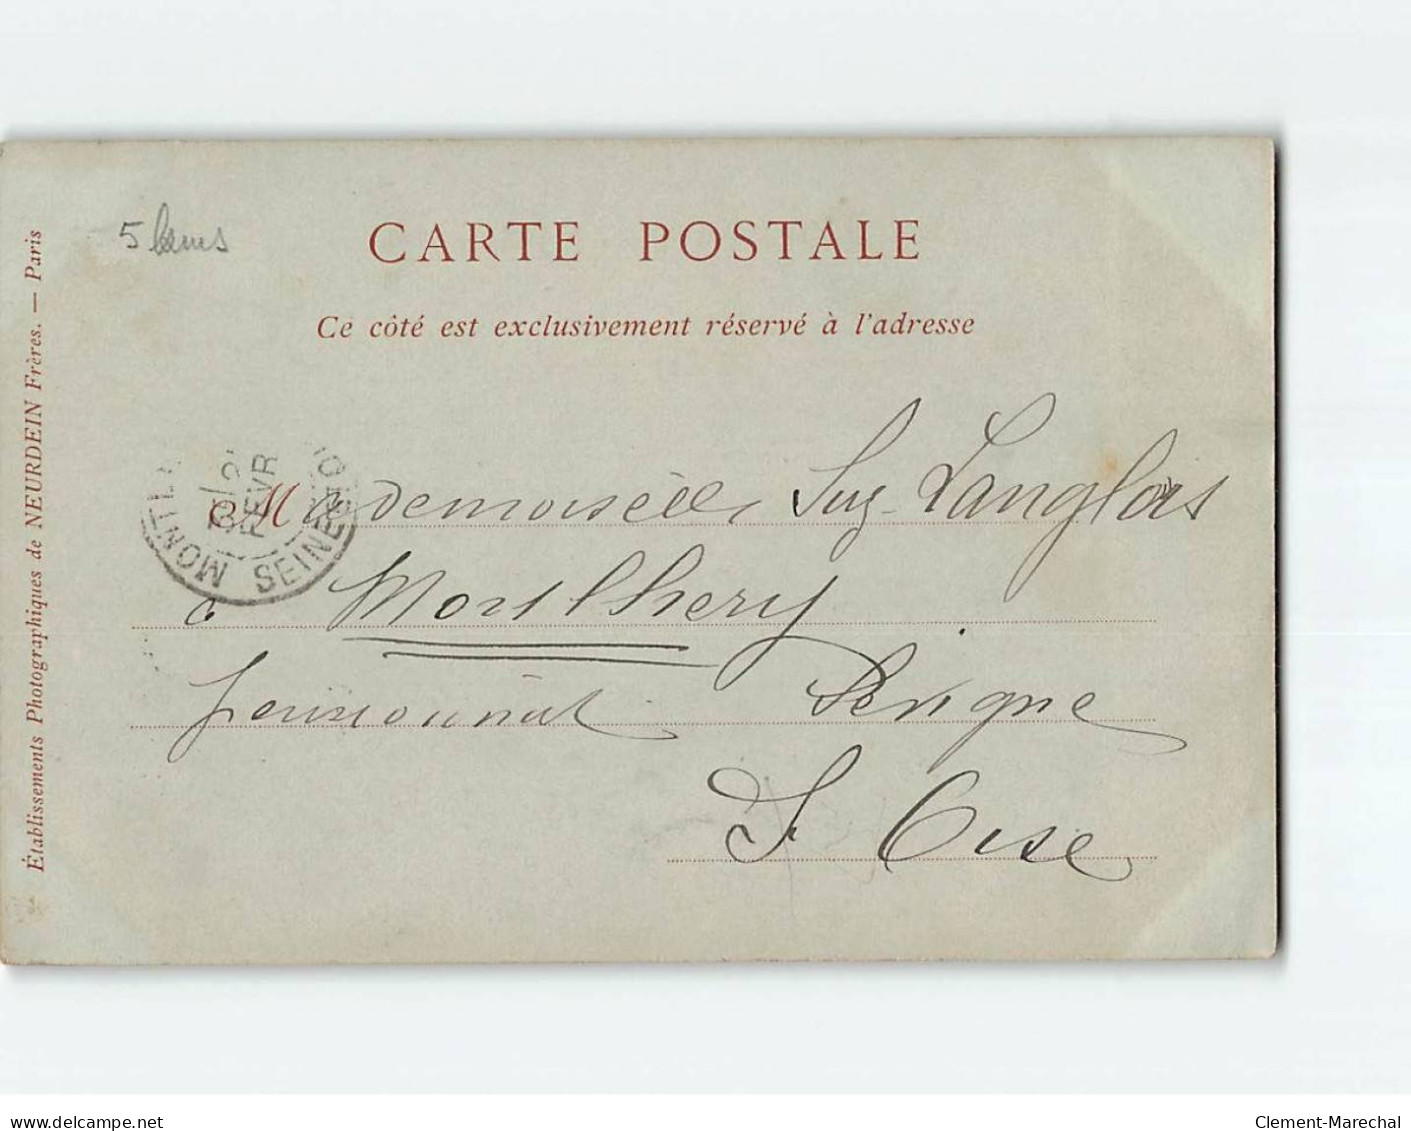 5
CARTE POSTALE
Ce côté est exclusivement réservé à l'adresse
Établissements Photographiques de NEURDEIN Frères. — Paris
MONTL
FEVR
SEINE
Mademoiselle Suz. Langlois
à Montlhery
Sevigne
S. Oise
www.delcampe.net
Clement-Marechal